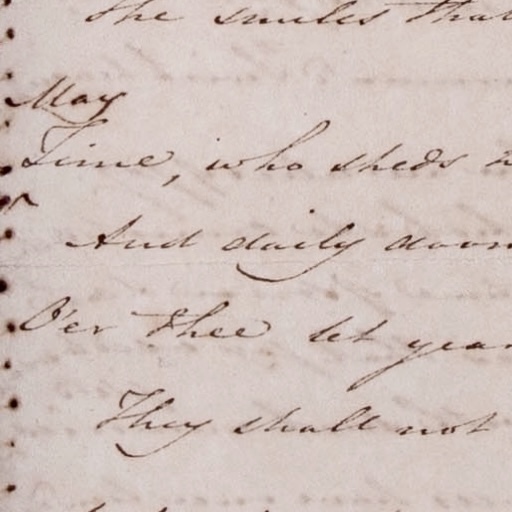 the smiles that
May
Time, who sheds
And daily doom
O'er thee let year
They shall not